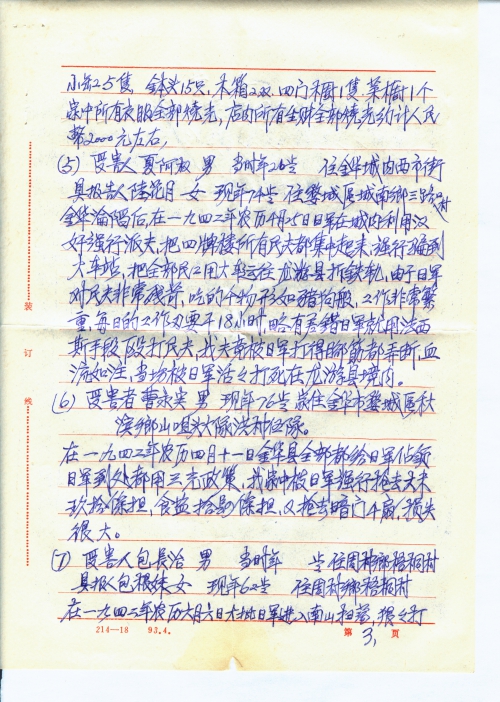 小缸25隻, 钵头15只, 木箱2双. 四门木橱1隻. 菜橱1个
家中所有衣服全部烧光, 店内所有全财全部烧光约计人民
幣2000元左右,
(5) 受害人 夏阿 男 当时年26岁 住金华城内西市街
具报告人陆花月 女 现年74岁 住婺城区城南鄉三路口村
金华淪陷后, 在一九四二年农历4月 日日军在城内利用汉
奸强行派夫. 把四牌楼所有民夫都集中起来. 强行 到
火车站, 把全部民伕用火车运往龙游县拆鉄軌, 由于日军
对民夫非常残苛, 吃的食物形如猪狗般, 工作非常繁
重, 每日的工作均要干18小时, 略有 日军就用法西
斯手段, 段打民夫, 我夫竟被日军打得脚筋都弄断, 血
流如注, 当场被日军活活打死在龙游县境内。
(6) 受害者 曹永安 男 现年76岁 家住金华市婺城区秋
滨鄉山咀头大隊 村伍隊。
在一九四二年农历四月十一日金华县全部都给日军佔領
日军到处都用三光政策, 我家中被日军强行抢去大米
玖拾 担, 食盐拾 担, 又抢去暗门4扇, 損失
很大。
(7) 受害人 包長治 男 当时年 岁 住周村鄉梧桐村
具报人包根妹 女 现年62岁 住周村鄉梧桐村
在一九四二年农历六月六日大批日军进入南山扫荡, 打
装
订
线
214—18 93.4.
第 3, 页